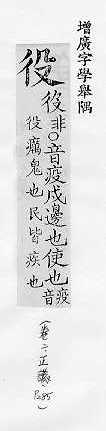 增廣字學舉隅
役
役非○音疫戍邊也使也
音疫
役癘鬼也民皆疾也
(卷二正譌
P285)